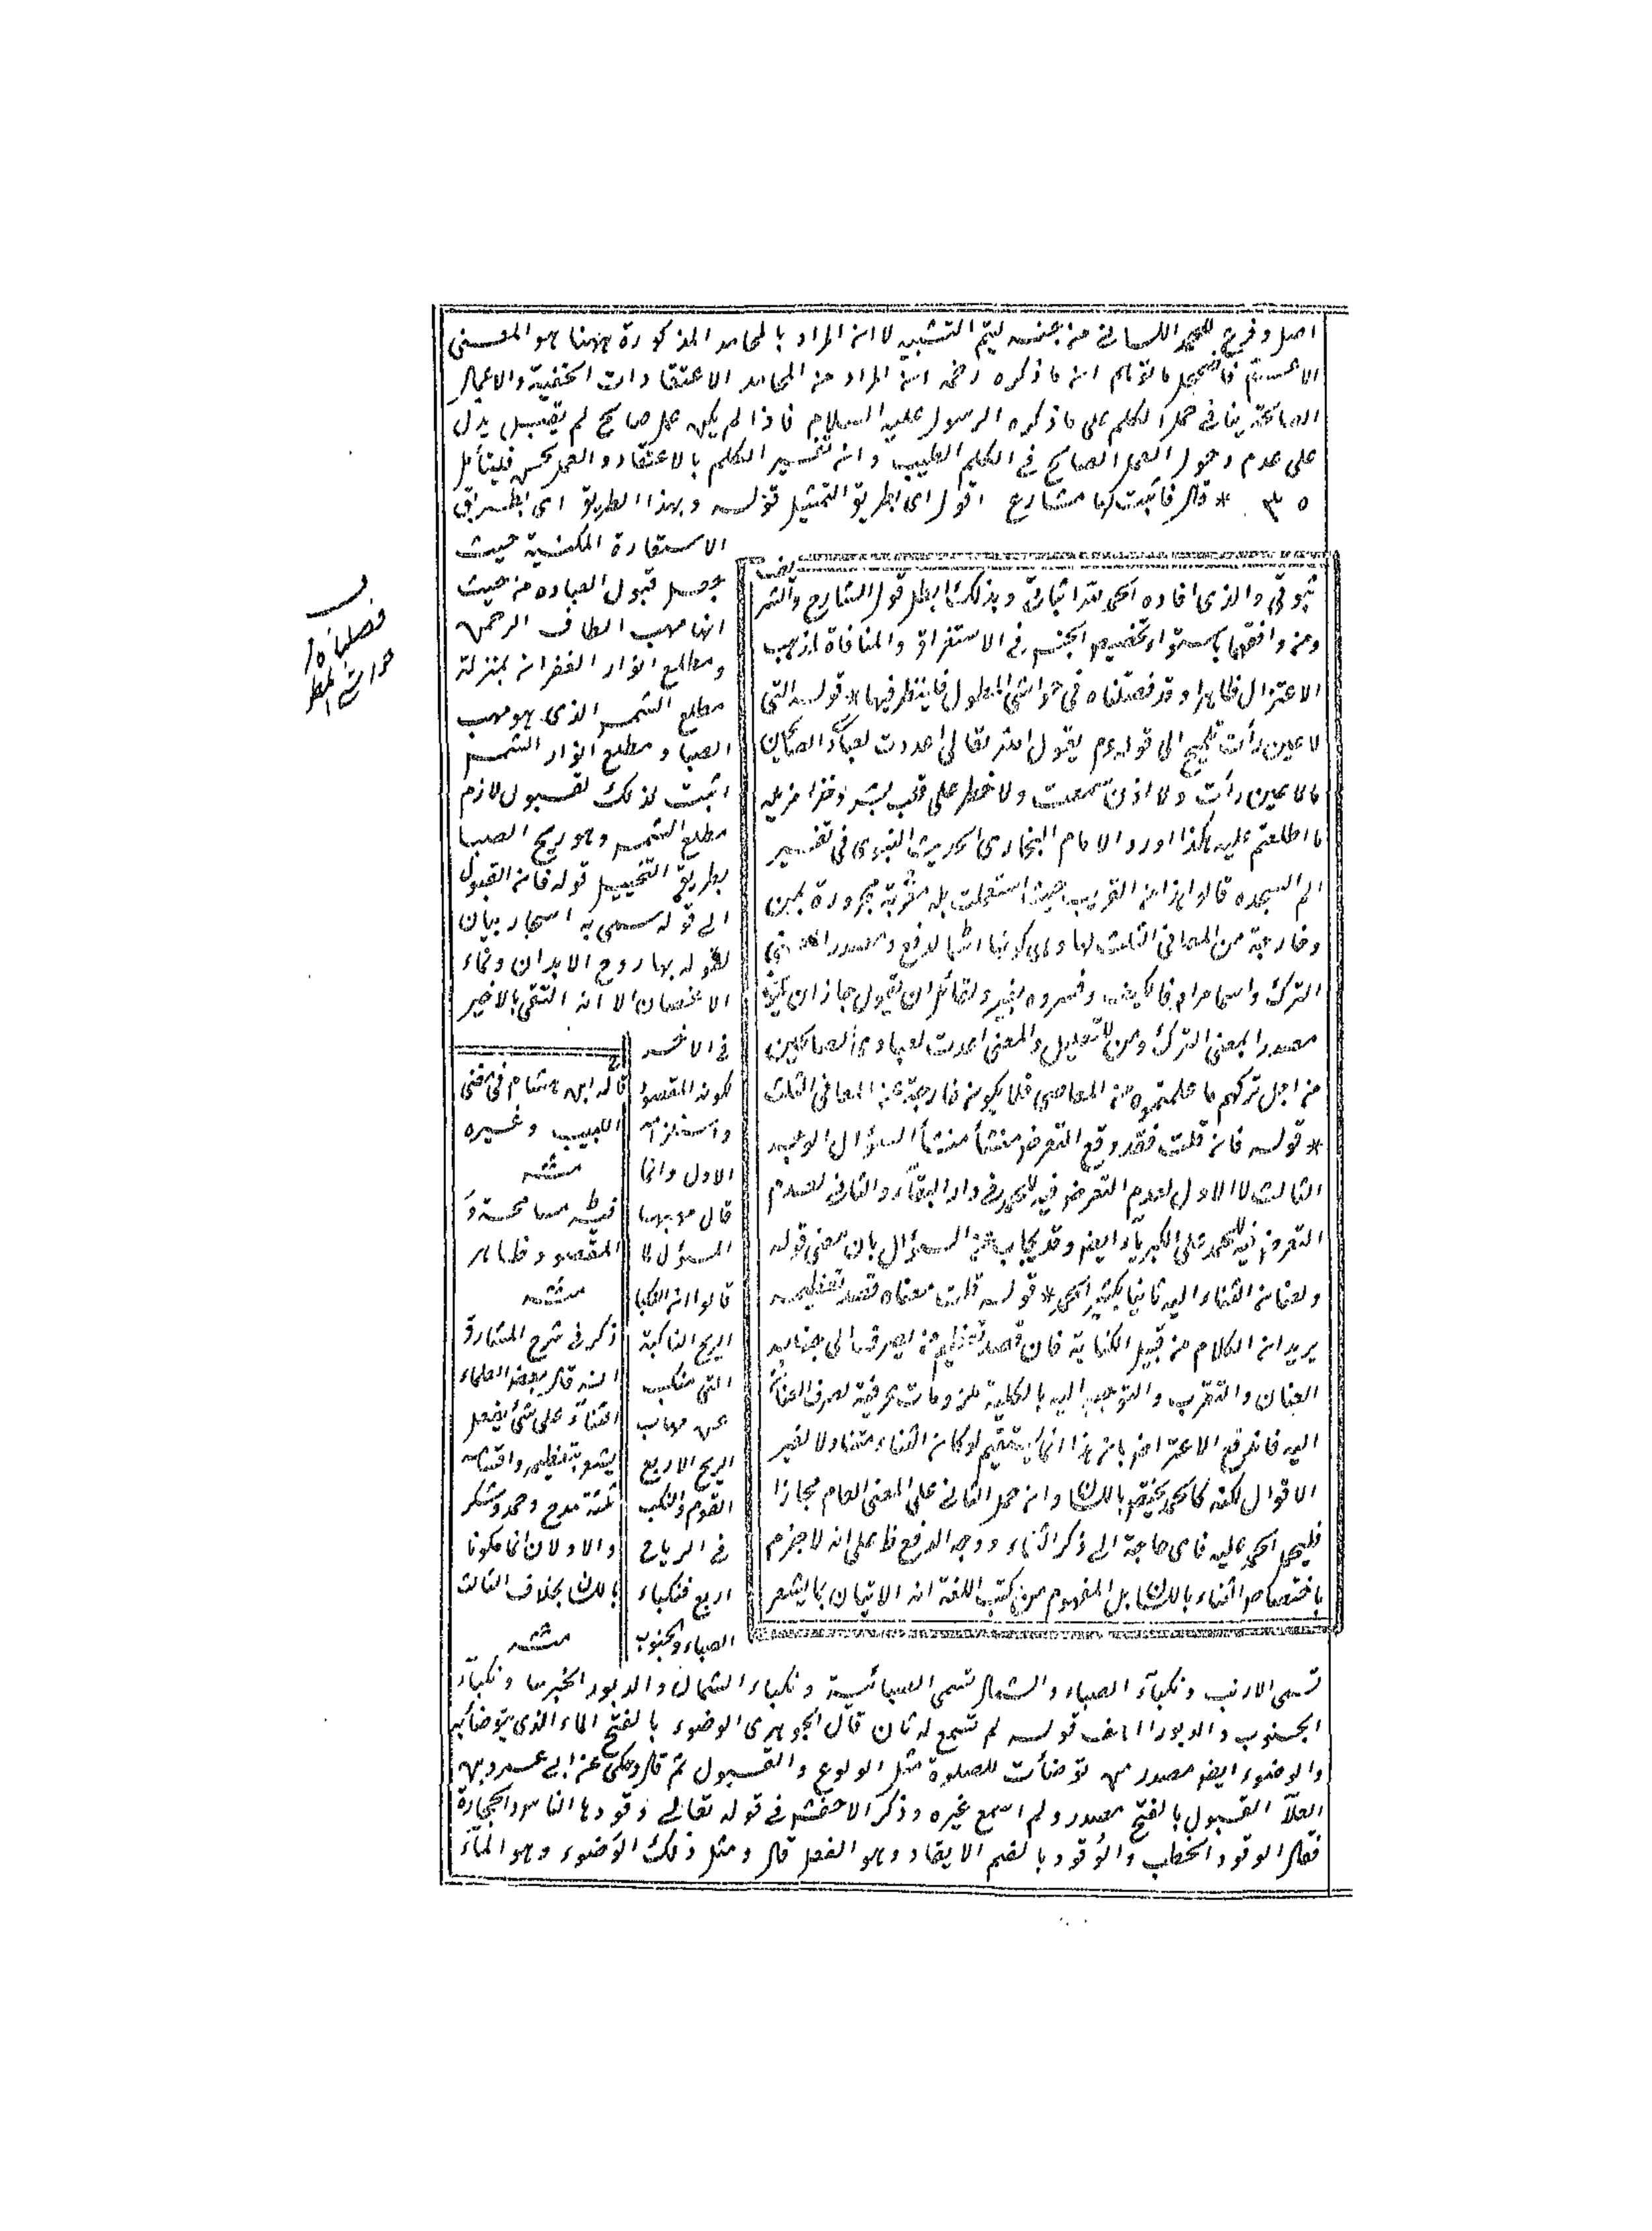 اصل وفرع للحمد اللساني من جنسه ليتم التشبيه لا ان المراد بالمحامد المذكورة ههنا هو المعنى
الاعم فاضمحل ما توهم ان ما ذكره رحمه ان المراد من المحامد الاعتقادات الحنفية والاعمال
الصالحة ينافي حمل الكلم على ما ذكره الرسول عليه السلام فاذا لم يكن عمل صالح لم يقبل يدل
على عدم دخول العمل الصالح في الكلم الطيب وان تفسير الكلم بالاعتقاد والعمل فليتأمل
* قال فأثبت لها مشارع اقول اى بطريق التمثيل قوله وبهذا الطريق اى بطريق
الاستعارة المكنية حيث
جعل قبول العباده من حيث
انها مهب الطاف الرحمن
ومطلع انوار الغفران بمنزلة
مطلع الشمس الذى هو مهب
الصبا ومطلع انوار الشمس
اثبت لذلك القبول لازم
مطلع الشمس وهو ريح الصبا
بطريق التخييل قوله فان القبول
الى قوله سمى به اسحار بيان
لقوله بها روح الابدان ونماء
الاغصان الا انه اكتفى بالاخير
في الاخر
لكونه المقصود
واستلزامه
الاول وانما
قال مهبها
المسؤل لما
قالوا ان النكبا
الريح الناكبة
التى تنكب
عن مهاب
الريح الاربع
القوم والنكب
في الرياح
اربع فنكباء
الصباء والجنوب
تسمى الازيب ونكباء الصباء والشمال تسمى الصبائية ونكباء الشمال والدبور الجربيا ونكباء
الجنوب والدبور الهيف قوله لم تسمع له ثان قال الجوهرى الوضوء بالفتح الماء الذى يتوضأ به
والوضوء ايضا مصدر من توضأت للصلوة مثل الولوع والقبول ثم قال وحكى عن ابى عمرو بن
العلاء القبول بالفتح مصدر ولم اسمع غيره وذكر الاخفش في قوله تعالى وقودها الناس والحجارة
فقال الوقود الحطب والوُقود بالضم الايقاد وهو الفعل قال ومثل ذلك الوَضوء وهو الماء
ثبوتي والذى افاده الحمد لله اثباتي وبذلك ابطل قول الشارح
ومن وافقهما باستواء تخصيص الجنس في الاستغراق والمنافاة لمذهب
الاعتزال ظاهرا وقد فصلناه في حواشى المطول فلينظر فيها * قوله التى
لا عين رأت تلميح الى قوله عم يقول الله تعالى اعددت لعبادى الصالحين
ما لا عين رأت ولا اذن سمعت ولا خطر على قلب بشر ذخرا من بله
ما اطلعتم عليه هكذا اورد الامام البخارى الحديث النبوى في تفسير
الم السجده قالوا هذا من الغريب حيث استعملت بله معربة مجرورة بمن
وخارجة من المعانى الثلث لها وهى كونها اسما لدع ومصدرا بمعنى
الترك واسما مرادفا لكيف وفسروه بغير ولقائل ان يقول جاز ان يكون
مصدرا بمعنى الترك ومن للتعليل والمعنى اعدت لعبادى الصالحين
من اجل تركهم ما علمتموه من المعاصى فلا يكون خارجة عن المعانى الثلث
* قوله فان قلت فقد وقع التعرض منشأ منشأ السؤال الوجه
الثالث لا الاول لعدم التعرض فيه للحمد في دار البقاء والثانى لعدم
التعرض فيه للحمد على الكبرياء ايضا وقد يجاب عن السؤال بان معنى قوله
ولعنان الثناء اليه ثانيا * قوله قلت معناه قصد تعظيمه
يريد ان الكلام من قبيل الكناية فان قصد تعظيم من يصرف الى جنابه
العنان والتقرب والتوجه اليه بالكلية ملزومات عرفية لصرف العنان
اليه فاندفع الاعتراض بان هذا انما يستقيم لو كان الثناء متناولا لغير
الاقوال لكنه كالحمد يختص باللسان وان حمل الثانى على المعنى العام مجازا
فليحمل الحمد عليه فاى حاجة الى ذكر الثناء ووجه الدفع ظ على انه لا جزم
باختصاص الثناء باللسان بل المفهوم من كتب اللغة انه الاتيان بما يشعر
قاله ابن هشام في مغنى
اللبيب وغيره
منه
فيه مسامحة و
المقصود ظاهر
منه
ذكر في شرح المشارق
انه قال بعض العلماء
الثناء على شئ بفعل
يشعر بتعظيمه واقسامه
ثلثة مدح وحمد وشكر
والاولان انما يكونا
باللسان بخلاف الثالث
منه
فصلناه
حواشى المطول